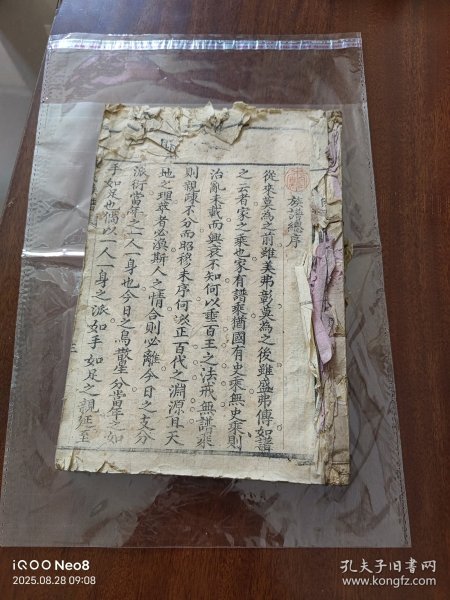 族譜總序
從來莫為之前雖美弗彰莫為之後雖盛弗傳如譜
之云者家之乘也家有譜乘猶國有史乘無史乘則
治亂未載而興衰不知何以垂百王之法戒無譜乘
則親疎不分而昭穆未序何以正百代之淵源且天
地之理萃者必渙斯人之情合則必離今日之支分
派衍當年之一人一身也今日之鳥散星分當年之如
手如足也偶以一人一身之派如手如足之親延至
iQOO Neo8
2025.08.28 09:08
孔夫子旧书网
www.kongfz.com